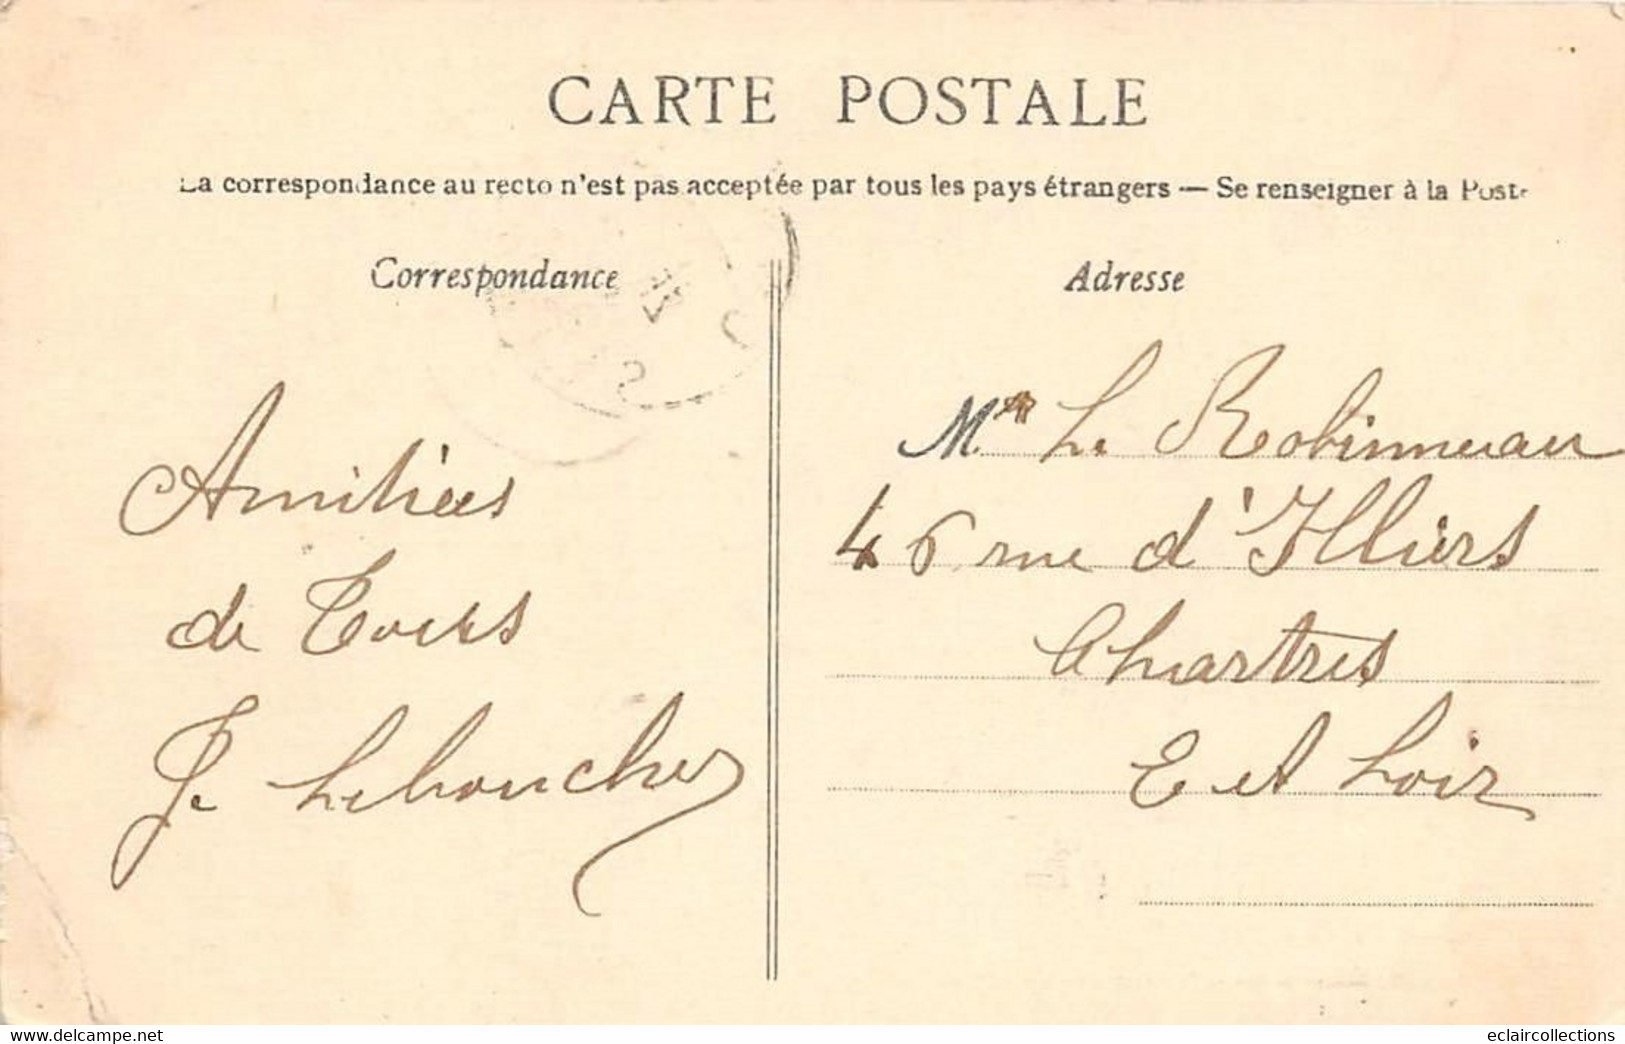 CARTE POSTALE
La correspondance au recto n'est pas acceptée par tous les pays étrangers — Se renseigner à la Poste
Correspondance
Amitiées
de Tours
Lebouchez
Adresse
Le Robinneau
46 rue d'Illiers
Chartres
E et Loir
www.delcampe.net
eclaircollections